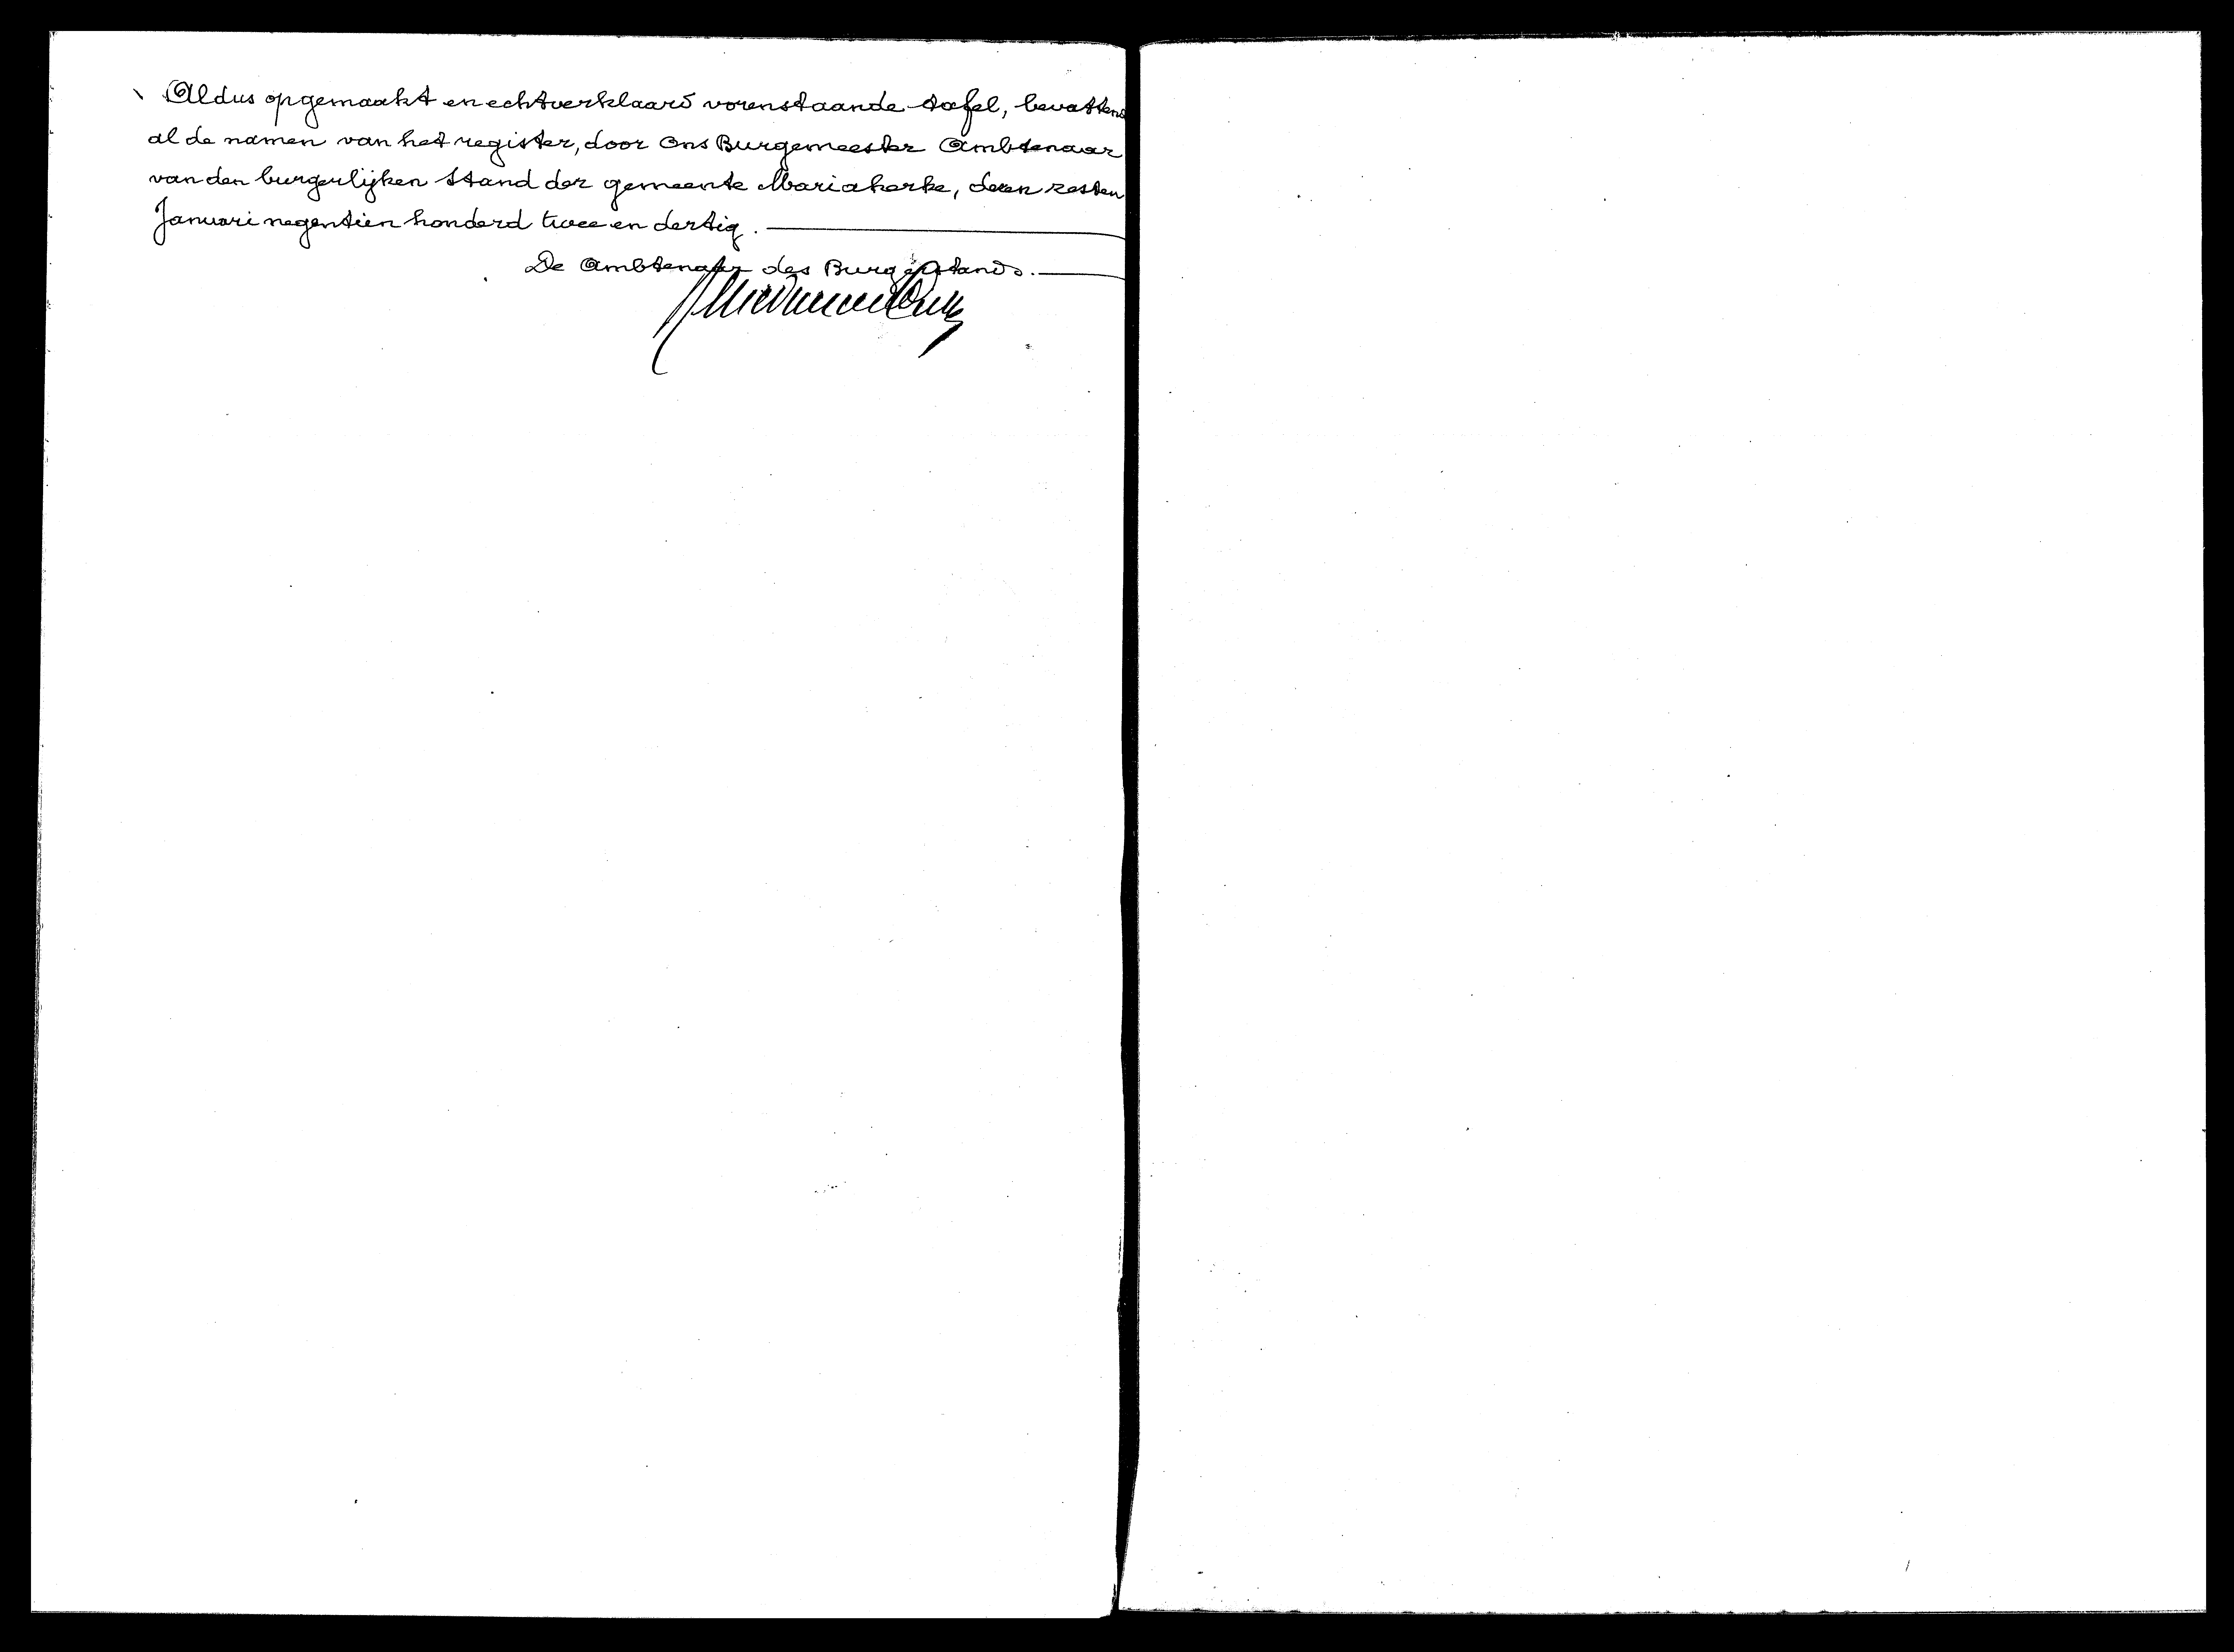 Aldus opgemaakt en echtverklaard vorenstaande tafel, bevattend
al de namen van het register, door Ons Burgemeester Ambtenaar
van den burgerlijken Stand der gemeente Mariakerke, dezen zesten
Januari negentien honderd twee en dertig.
De Ambtenaar des Burgerstands.